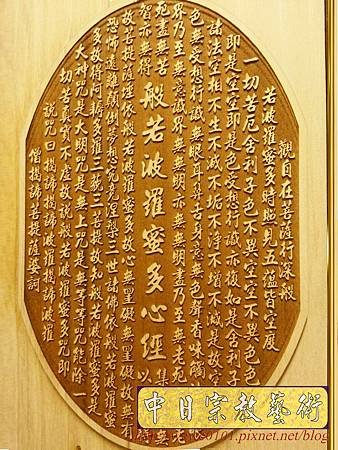 觀自在菩薩行深般
若波羅蜜多時照見五蘊皆空度
一切苦厄舍利子色不異空空不異色色
即是空空即是色受想行識亦復如是舍利子
諸法空相不生不滅不垢不淨不增不減是故空
色無受想行識無眼耳鼻舌身意無色聲香味觸
界乃至無意識界無無明亦無無明盡乃至無老死
死盡無苦集
般若波羅蜜多心經
智亦無得以
故菩提薩埵依般若波羅蜜多故心無罣礙無罣礙故無有
恐怖遠離顛倒夢想究竟涅槃三世諸佛依般若波羅蜜
多故得阿耨多羅三藐三菩提故知般若波羅蜜多是
大神咒是大明咒是無上咒是無等等咒能除一
切苦真實不虛故說般若波羅蜜多咒即
說咒曰揭諦揭諦波羅揭諦波羅
僧揭諦菩提薩婆訶
中日宗教藝術
0101.pixnet.net/blog